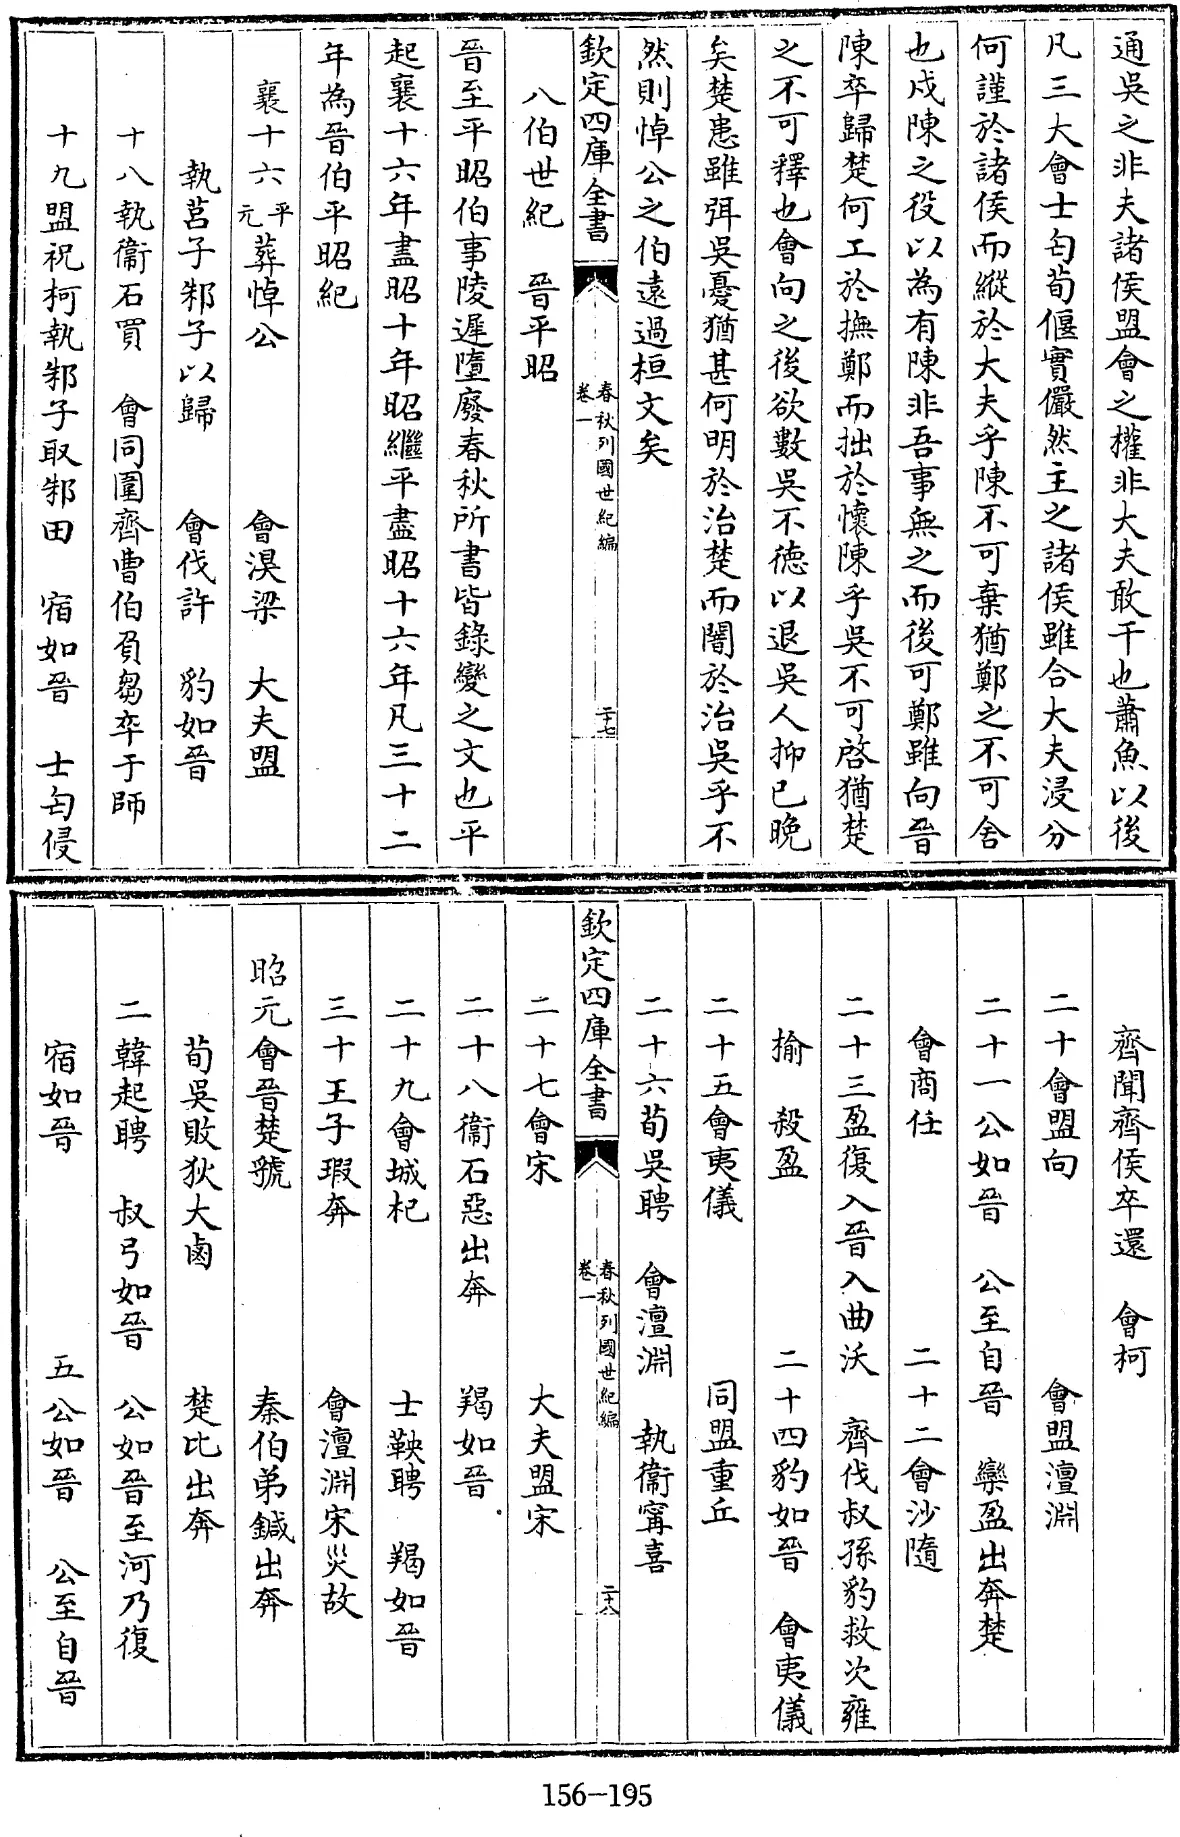 通吳之非夫諸侯盟會之權非大夫敢干也蕭魚以後
凡三大會士匄荀偃實儼然主之諸侯雖合大夫浸分
何謹於諸侯而縱於大夫乎陳不可棄猶鄭之不可舍
也戍陳之役以為有陳非吾事無之而後可鄭雖向晉
陳卒歸楚何工於撫鄭而拙於懷陳乎吳不可啓猶楚
之不可釋也會向之後欲數吳不德以退吳人抑已晚
矣楚患雖弭吳憂猶甚何明於治楚而闇於治吳乎不
然則悼公之伯遠過桓文矣
欽定四庫全書
春秋列國世紀編
卷一
二十七
八伯世紀　晉平昭
晉至平昭伯事陵遲墮廢春秋所書皆錄變之文也平
起襄十六年盡昭十年昭繼平盡昭十六年凡三十二
年為晉伯平昭紀
襄十六平元葬悼公　會湨梁　大夫盟
執莒子邾子以歸　會伐許　豹如晉
十八執衞石買　會同圍齊曹伯負芻卒于師
十九盟祝柯執邾子取邾田　宿如晉　士匄侵
齊聞齊侯卒還　會柯
二十會盟向　會盟澶淵
二十一公如晉　公至自晉　欒盈出奔楚
會商任　二十二會沙隨
二十三盈復入晉入曲沃　齊伐叔孫豹救次雍
揄　殺盈　二十四豹如晉　會夷儀
二十五會夷儀　同盟重丘
二十六荀吳聘　會澶淵　執衞甯喜
欽定四庫全書
春秋列國世紀編
卷一
二十八
二十七會宋　大夫盟宋
二十八衞石惡出奔　羯如晉
二十九會城杞　士鞅聘　羯如晉
三十王子瑕奔　會澶淵宋災故
昭元會晉楚虢　秦伯弟鍼出奔
荀吳敗狄大鹵　楚比出奔
二韓起聘　叔弓如晉　公如晉至河乃復
宿如晉　五公如晉　公至自晉
156-195